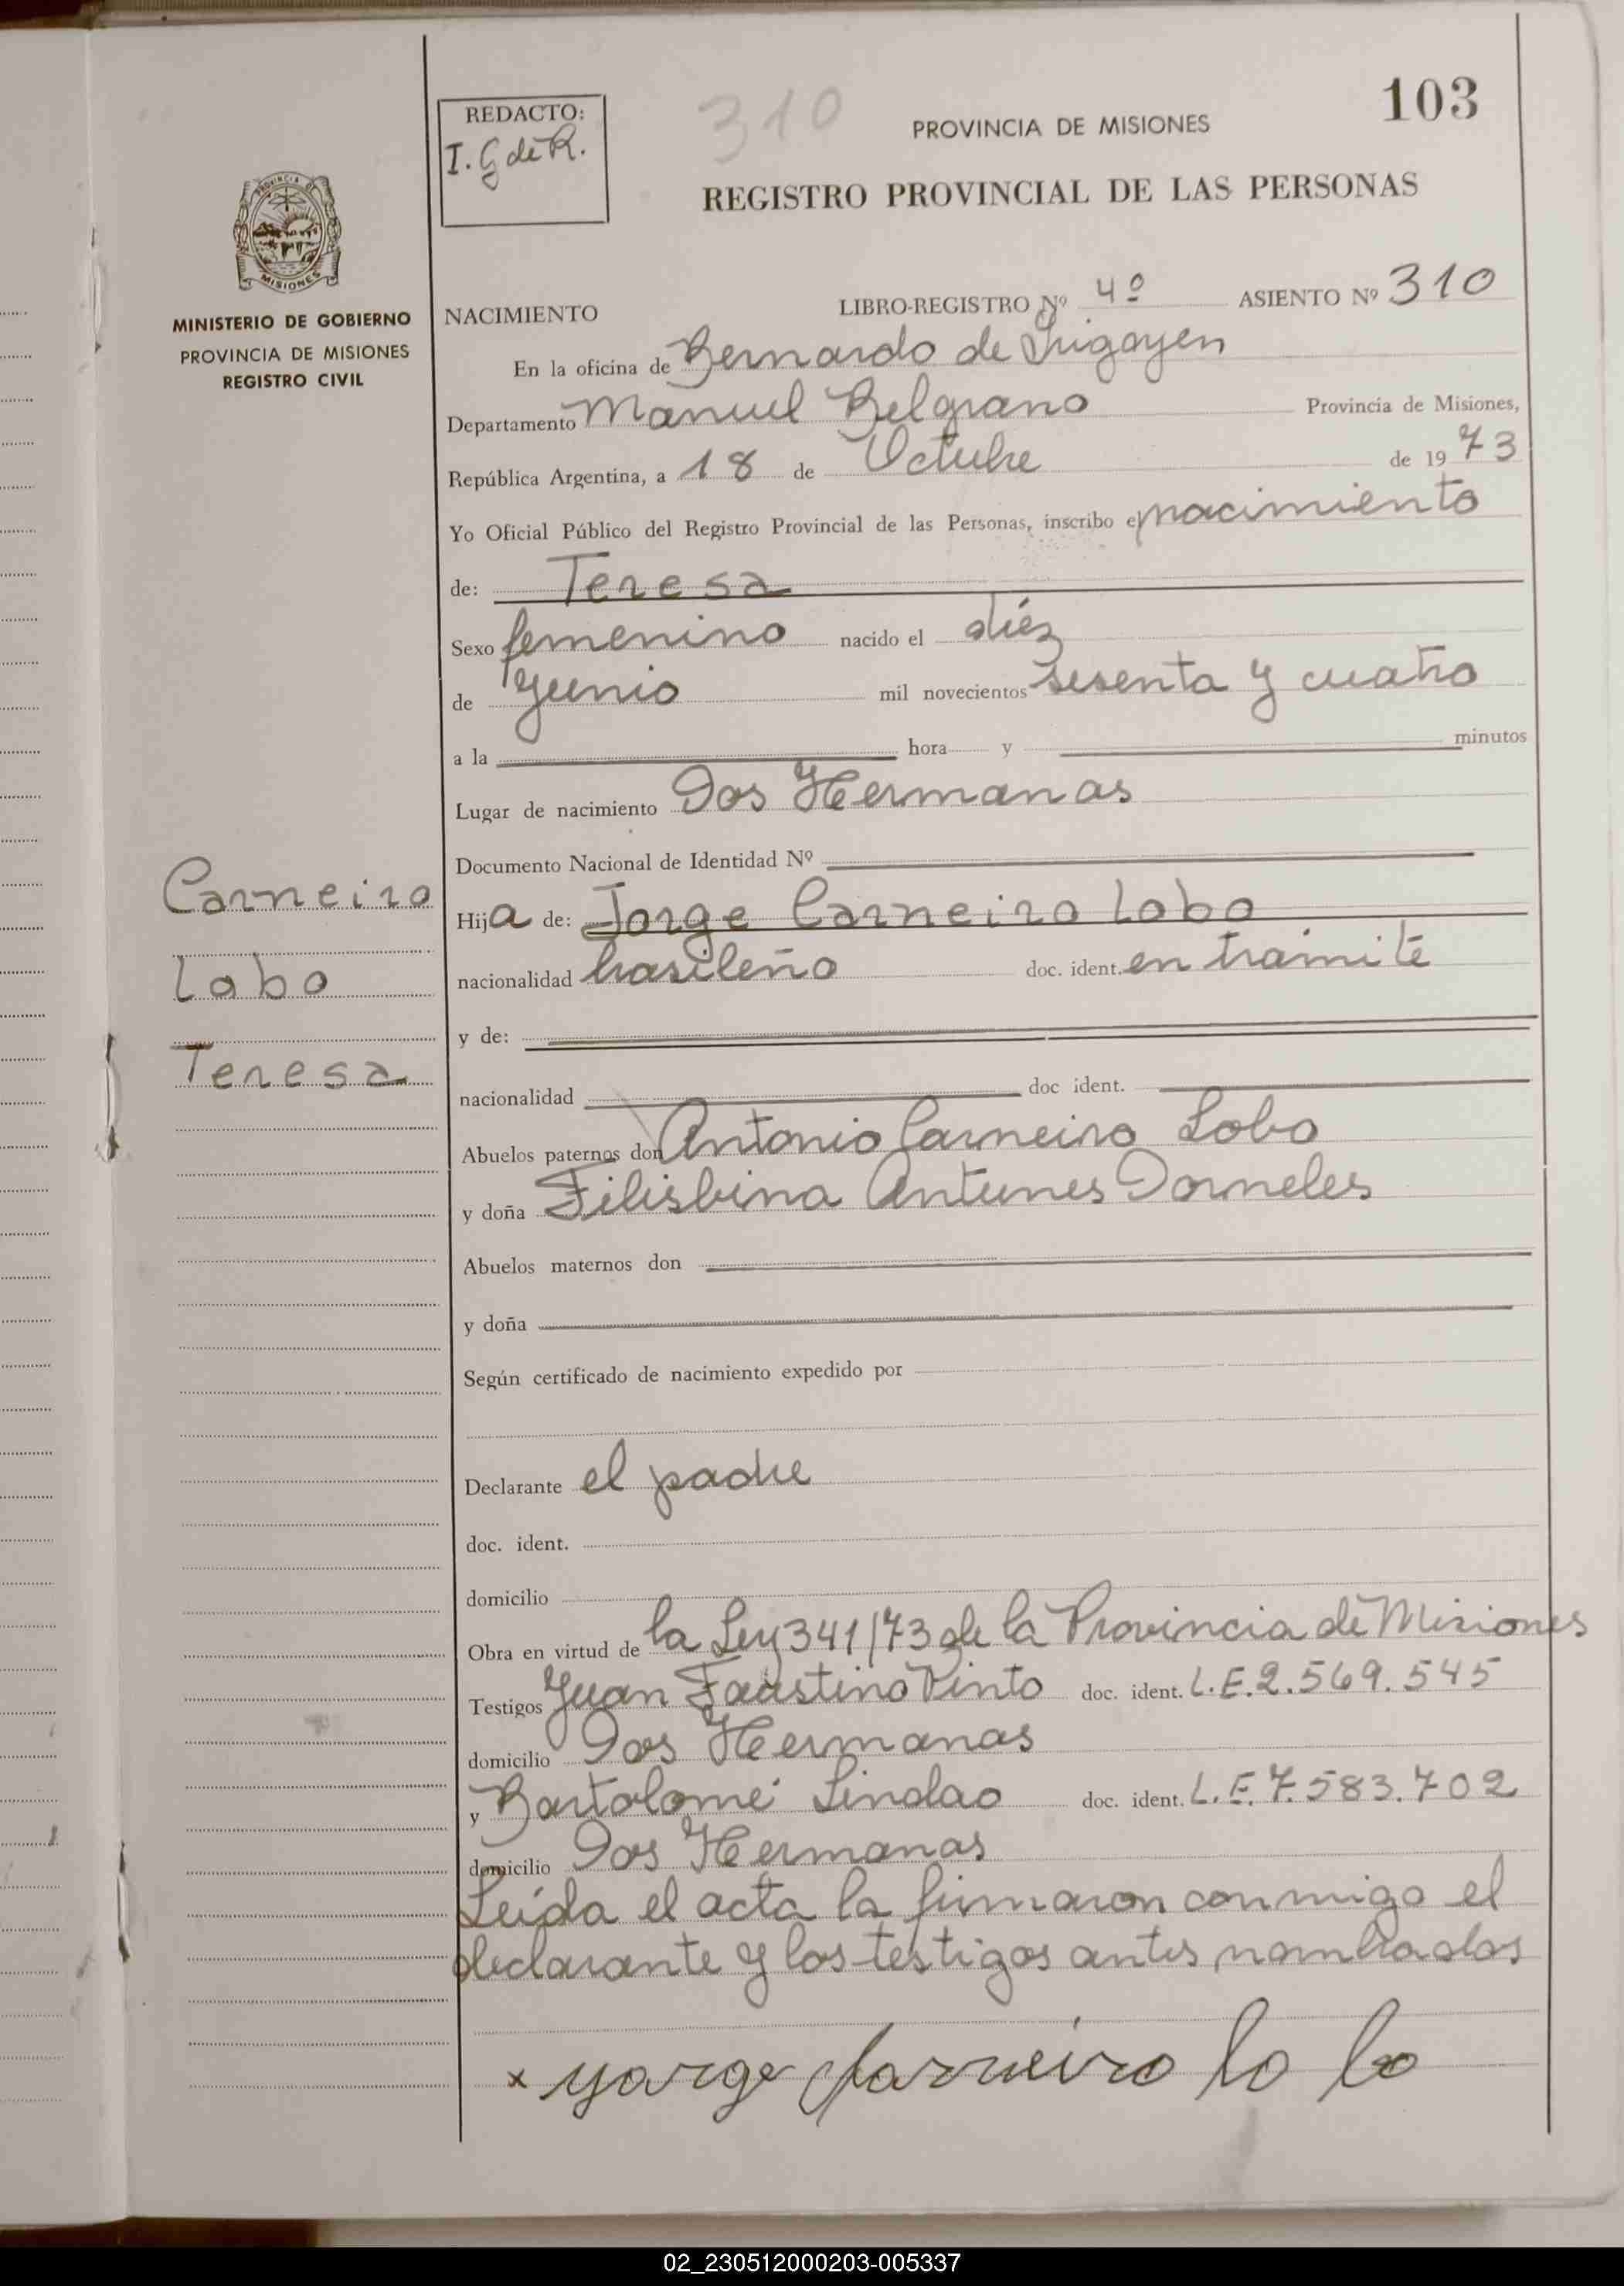 103
REDACTO:
I. G de R.
310
PROVINCIA DE MISIONES
REGISTRO PROVINCIAL DE LAS PERSONAS
MISIONES
MINISTERIO DE GOBIERNO
PROVINCIA DE MISIONES
REGISTRO CIVIL
NACIMIENTO LIBRO-REGISTRO Nº 4º ASIENTO Nº 310
En la oficina de Bernardo de Irigoyen
Departamento Manuel Belgrano Provincia de Misiones,
República Argentina, a 18 de Octubre de 1973
Yo Oficial Público del Registro Provincial de las Personas, inscribo el nacimiento
de: Teresa
Sexo femenino nacido el diéz
de Junio mil novecientos sesenta y cuatro
a la hora y minutos
Lugar de nacimiento Dos Hermanas
Documento Nacional de Identidad Nº
Carneiro
Lobo
Teresa
Hija de: Jorge Carneiro Lobo
nacionalidad brasileño doc. ident. en trámite
y de:
nacionalidad doc ident.
Abuelos paternos don Antonio Carneiro Lobo
y doña Filisbina Antunes Dorneles
Abuelos maternos don
y doña
Según certificado de nacimiento expedido por
Declarante el padre
doc. ident.
domicilio
Obra en virtud de la Ley 341/73 de la Provincia de Misiones
Testigos Juan Faustino Pinto doc. ident. L.E. 2.569.545
domicilio Dos Hermanas
y Bartolomé Lindao doc. ident. L.E. 7.583.702
domicilio Dos Hermanas
Leída el acta la firmaron conmigo el
declarante y los testigos antes nombrados
x yorge Carneiro lo bo
02_230512000203-005337